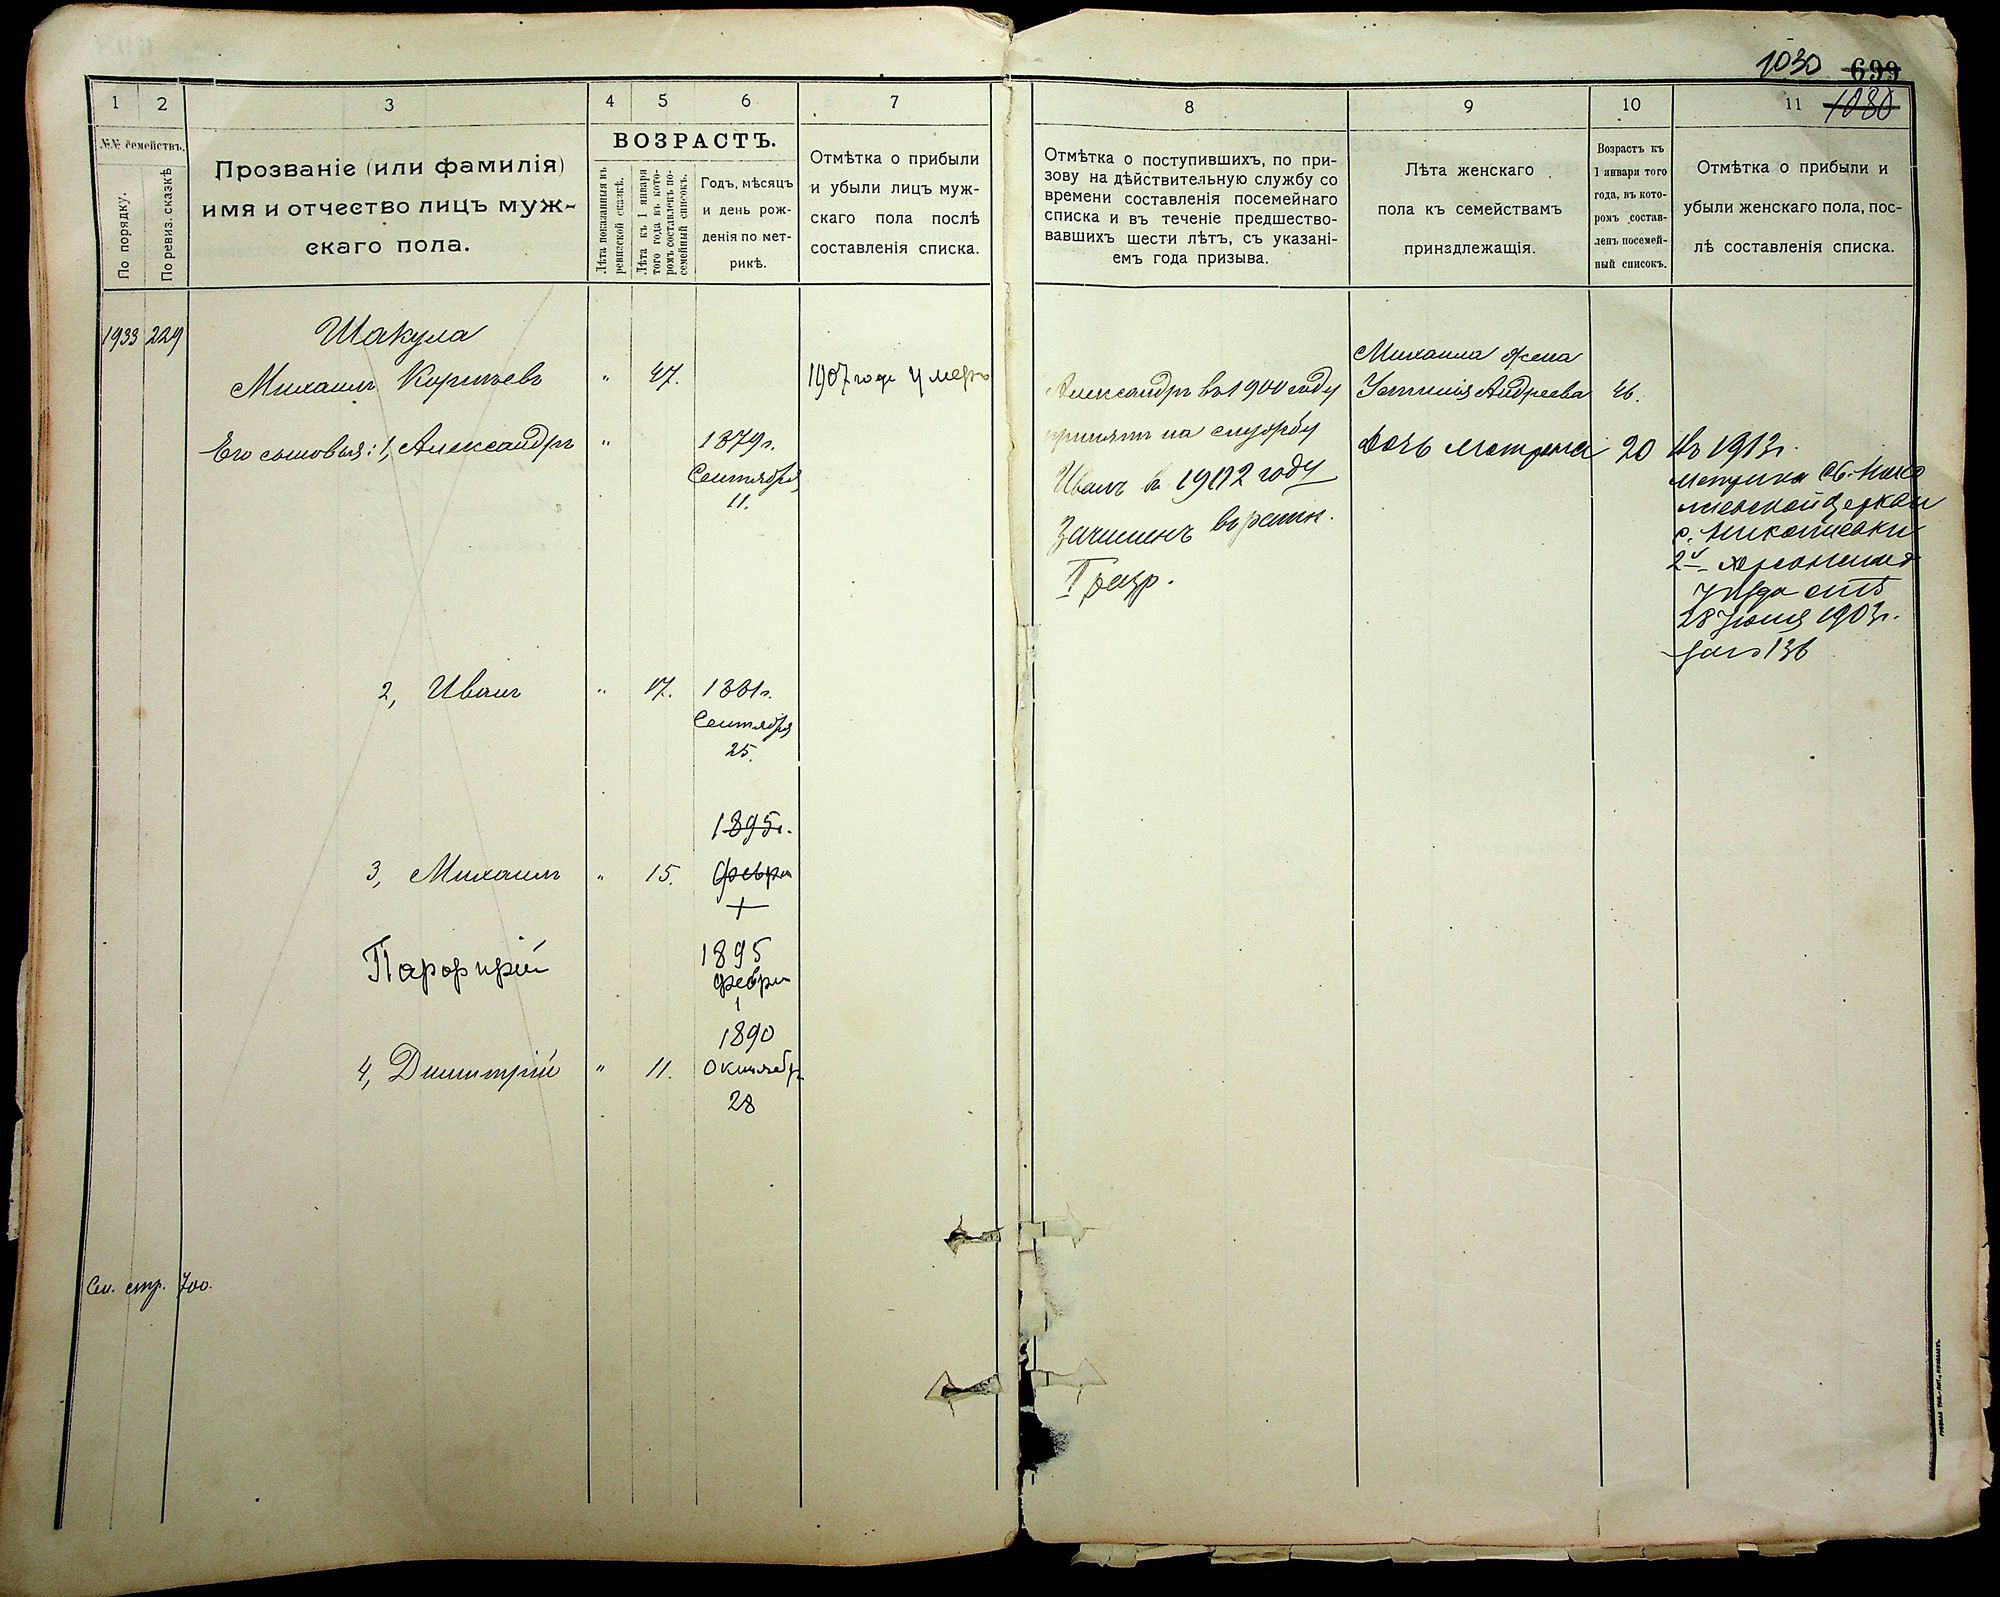 1030 699
1080
1 2 3 4 5 6 7
№№ семействъ.
По порядку.
По ревиз. сказкѣ
Прозваніе (или фамилія)
имя и отчество лицъ муж-
скаго пола.
ВОЗРАСТЪ.
Лѣта показанныя въ
ревизской сказкѣ.
Лѣта къ 1 января
того года въ кото-
ромъ составленъ по-
семейный списокъ.
Годъ, мѣсяцъ
и день рож-
денія по мет-
рикѣ.
Отмѣтка о прибыли
и убыли лицъ муж-
скаго пола послѣ
составленія списка.
8 9 10 11
Отмѣтка о поступившихъ, по при-
зову на дѣйствительную службу со
времени составленія посемейнаго
списка и въ теченіе предшество-
вавшихъ шести лѣтъ, съ указані-
емъ года призыва.
Лѣта женскаго
пола къ семействамъ
принадлежащія.
Возрастъ къ
1 января того
года, въ кото-
ромъ состав-
ленъ посемей-
ный списокъ.
Отмѣтка о прибыли и
убыли женскаго пола, пос-
лѣ составленія списка.
1933 229 Шакула
Михаилъ " 47. 1907 года умеръ
Его сыновья: 1, Александръ " 1879 г.
Сентября
11.
2, Иванъ " 17. 1881 г.
Сентября
25.
1895 г.
3, Михаилъ " 15. февр
1895
февр
1
1890
4, Димитрій " 11. Октябр
28
См. стр. 700.
Александръ въ 1900 году
принятъ на службу
Иванъ въ 1902 году
Зачисленъ в ратн.
I разр.
Михаила жена
Андреева 46.
дочь Матрена 20
Въ 1913 г.
метрика Св. Нико
лаевской Церкви
с. Николаевки
2й Херсонскаго
уѣзда отъ
28 Іюня 1903 г.
136